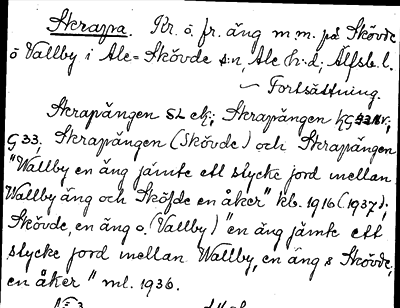 Skrapa. Kr. ö. fr. äng m.m. på Skövde
ö Vallby i Ale=Skövde s:n, Ale h:d, Älfsb. l.
— Fortsättning.
Skrapängen SL ek; Skrapängen
G 33; Skrapängen (Skövde) och Skrapängen
"Wallby en äng jämte ett stycke jord mellan
Wallby äng och Sköfde en åker" kb. 1916 (1937);
Skövde, en äng o. (Vallby) "en äng jämte ett
stycke jord mellan Wallby, en äng & Skövde,
en åker" ml. 1936.